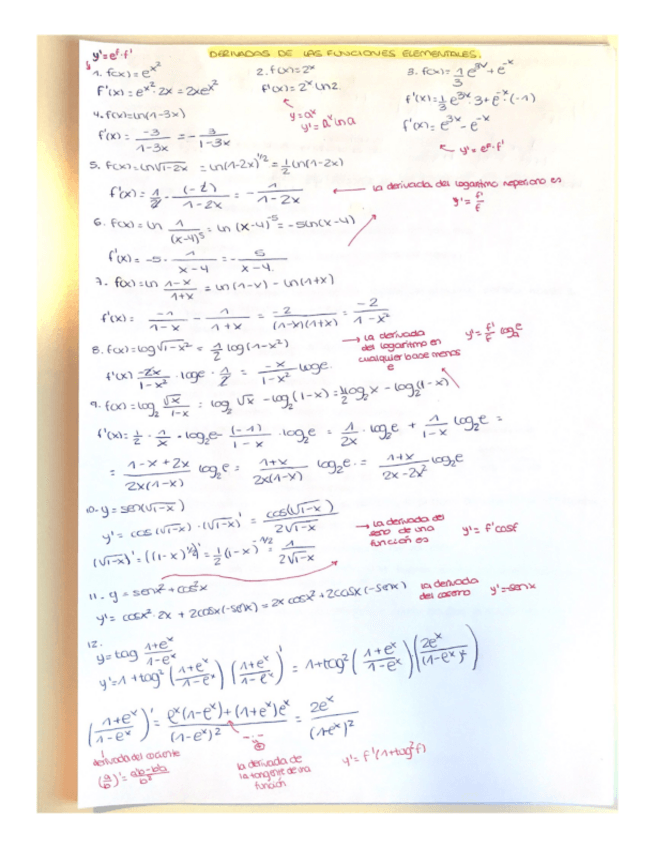 DERIVADAS DE LAS FUNCIONES ELEMENTALES.
y'=eᶠ·f'
1. f(x)=e^x² 2. f(x)=2ˣ 3. f(x)=1/3 e^3x + e^-x
f'(x)=e^x²·2x = 2xe^x² f'(x)=2ˣ ln2. f'(x)=1/3 e^3x·3+e^-x·(-1)
4. f(x)=ln(1-3x) y=aˣ
y'=aˣ lna
f'(x)= -3/(1-3x) = - 3/(1-3x) f'(x)= e^3x - e^-x
y'=eᶠ·f'
5. f(x)=ln√(1-2x) = ln(1-2x)^1/2 = 1/2 ln(1-2x)
f'(x)= 1/2 · (-2)/(1-2x) = - 1/(1-2x)
la derivada del logaritmo neperiano es
y'= f'/f
6. f(x)= ln 1/(x-4)⁵ = ln (x-4)^-5 = -5ln(x-4)
f'(x)= -5· 1/(x-4) = - 5/(x-4).
7. f(x)=ln (1-x)/(1+x) = ln(1-x) - ln(1+x)
f'(x)= -1/(1-x) - 1/(1+x) = -2/((1-x)(1+x)) = -2/(1-x²)
8. f(x)=log√(1-x²) = 1/2 log(1-x²)
La derivada
del logaritmo en
cualquier base menos
e
y'= f'/f logₐe
f'(x) -2x/(1-x²) · loge · 1/2 = -x/(1-x²) loge.
9. f(x)=log₂ √x/(1-x) = log₂ √x - log₂(1-x) = 1/2 log₂x - log₂(1-x)
f'(x)= 1/2 · 1/x · log₂e - (-1)/(1-x) · log₂e = 1/2x · log₂e + 1/(1-x) log₂e =
= (1-x+2x)/(2x(1-x)) log₂e = (1+x)/(2x(1-x)) log₂e = (1+x)/(2x-2x²) log₂e
10. y = sen(√(1-x))
y' = cos(√(1-x))·(√(1-x))' = cos(√(1-x))/(2√(1-x))
La derivada del
seno de una
función es
y'= f'cosf
(√(1-x))'=((1-x)^1/2)'= 1/2(1-x)^-1/2 = 1/(2√(1-x))
11. y = senx²+cos²x
y'= cosx²·2x + 2cosx(-senx) = 2x cosx²+2cosx(-senx)
la derivada
del coseno
y'=-senx
12.
y=tag (1+eˣ)/(1-eˣ)
y'=1+tag² ((1+eˣ)/(1-eˣ)) ((1+eˣ)/(1-eˣ))' = 1+tag² ((1+eˣ)/(1-eˣ)) (2eˣ/(1-eˣ)²)
((1+eˣ)/(1-eˣ))' = (eˣ(1-eˣ)+(1+eˣ)eˣ)/(1-eˣ)² = 2eˣ/(1-eˣ)²
-·-
⊕
derivada del cociente
(a/b)'= (a'b-b'a)/b²
la derivada de
la tangente de una
función
y'= f'(1+tag²f)